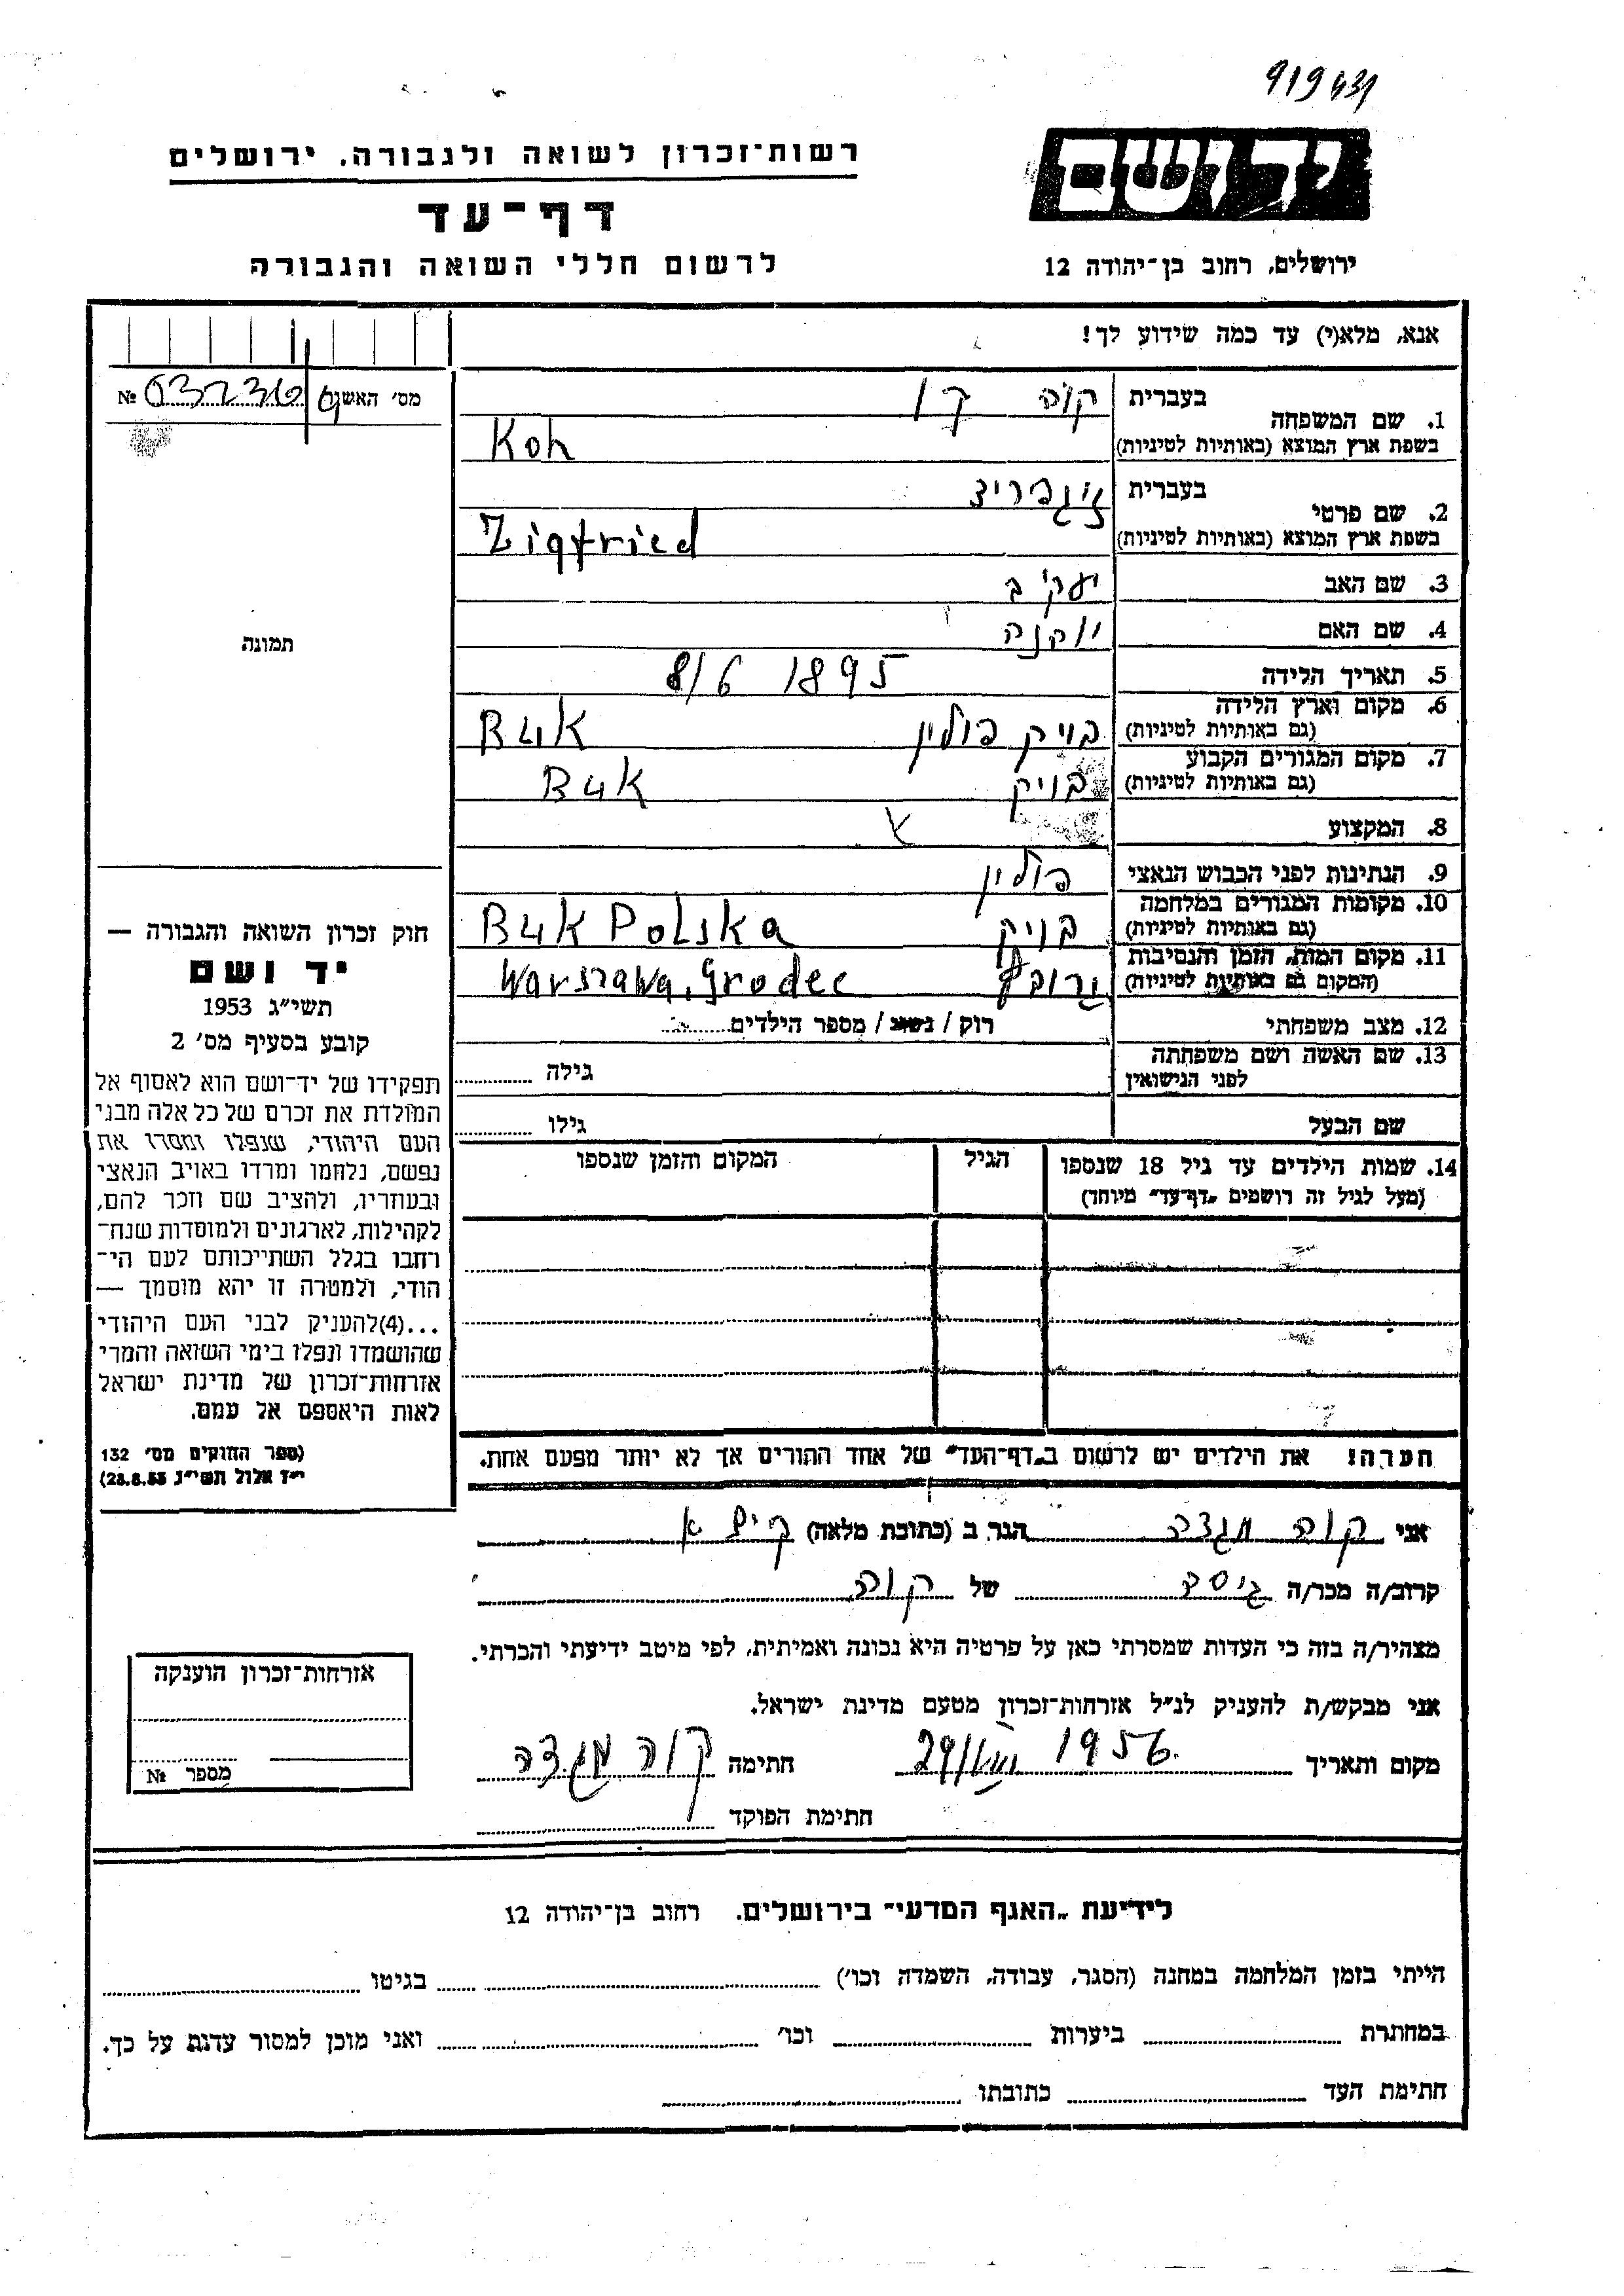 919431
יד ושם
ירושלים, רחוב בן־יהודה 12
רשות־זכרון לשואה ולגבורה, ירושלים
דף־עד
לרשום חללי השואה והגבורה
אנא, מלא(י) עד כמה שידוע לך!
מס׳ האשנב
№
1. שם המשפחה
בעברית קוה קו
בשפת ארץ המוצא (באותיות לטיניות) Koh
2. שם פרטי
בעברית זיגפריד
בשפת ארץ המוצא (באותיות לטיניות) Zigfried
3. שם האב יעקב
4. שם האם
5. תאריך הלידה 8/6 1895
6. מקום וארץ הלידה
(גם באותיות לטיניות) בויק פולין Buk
7. מקום המגורים הקבוע
(גם באותיות לטיניות) בויק Buk
8. המקצוע
9. הנתינות לפני הכבוש הנאצי פולין
10. מקומות המגורים במלחמה
(גם באותיות לטיניות) בויק Buk Polska
11. מקום המות, הזמן והנסיבות
(המקום גם באותיות לטיניות) Warszawa, Grodec
12. מצב משפחתי רוק / נשוי / מספר הילדים
13. שם האשה ושם משפחתה
לפני הנישואין גילה
שם הבעל גילו
14. שמות הילדים עד גיל 18 שנספו
(מעל לגיל זה רושמים "דף־עד" מיוחד)
הגיל
המקום והזמן שנספו
הערה! את הילדים יש לרשום ב"דף־העד" של אחד ההורים אך לא יותר מפעם אחת.
תמונה
חוק זכרון השואה והגבורה —
יד ושם
תשי״ג 1953
קובע בסעיף מס׳ 2
תפקידו של יד־ושם הוא לאסוף אל
המולדת את זכרם של כל אלה מבני
העם היהודי, שנפלו ומסרו את
נפשם, נלחמו ומרדו באויב הנאצי
ובעוזריו, ולהציב שם וזכר להם,
לקהילות, לארגונים ולמוסדות שנח־
רבו בגלל השתייכותם לעם הי־
הודי, ולמטרה זו יהא מוסמך —
...(4)להעניק לבני העם היהודי
שהושמדו ונפלו בימי השואה והמרי
אזרחות־זכרון של מדינת ישראל
לאות היאספם אל עמם.
(ספר החוקים מס׳ 132
י״ז אלול תשי״ג 28.8.53)
אני קוה מגדה הגר ב (כתובת מלאה)
קרוב/ה מכר/ה גיסה של קוה
מצהיר/ה בזה כי העדות שמסרתי כאן על פרטיה היא נכונה ואמיתית, לפי מיטב ידיעתי והכרתי.
אני מבקש/ת להעניק לנ״ל אזרחות־זכרון מטעם מדינת ישראל.
מקום ותאריך 1956 חתימה קוה מגדה
חתימת הפוקד
אזרחות־זכרון הוענקה
מספר №
לידיעת "האגף המדעי" בירושלים. רחוב בן־יהודה 12
הייתי בזמן המלחמה במחנה (הסגר, עבודה, השמדה וכו׳) בגיטו
במחתרת ביערות וכו׳ ואני מוכן למסור עדות על כך.
חתימת העד כתובתו